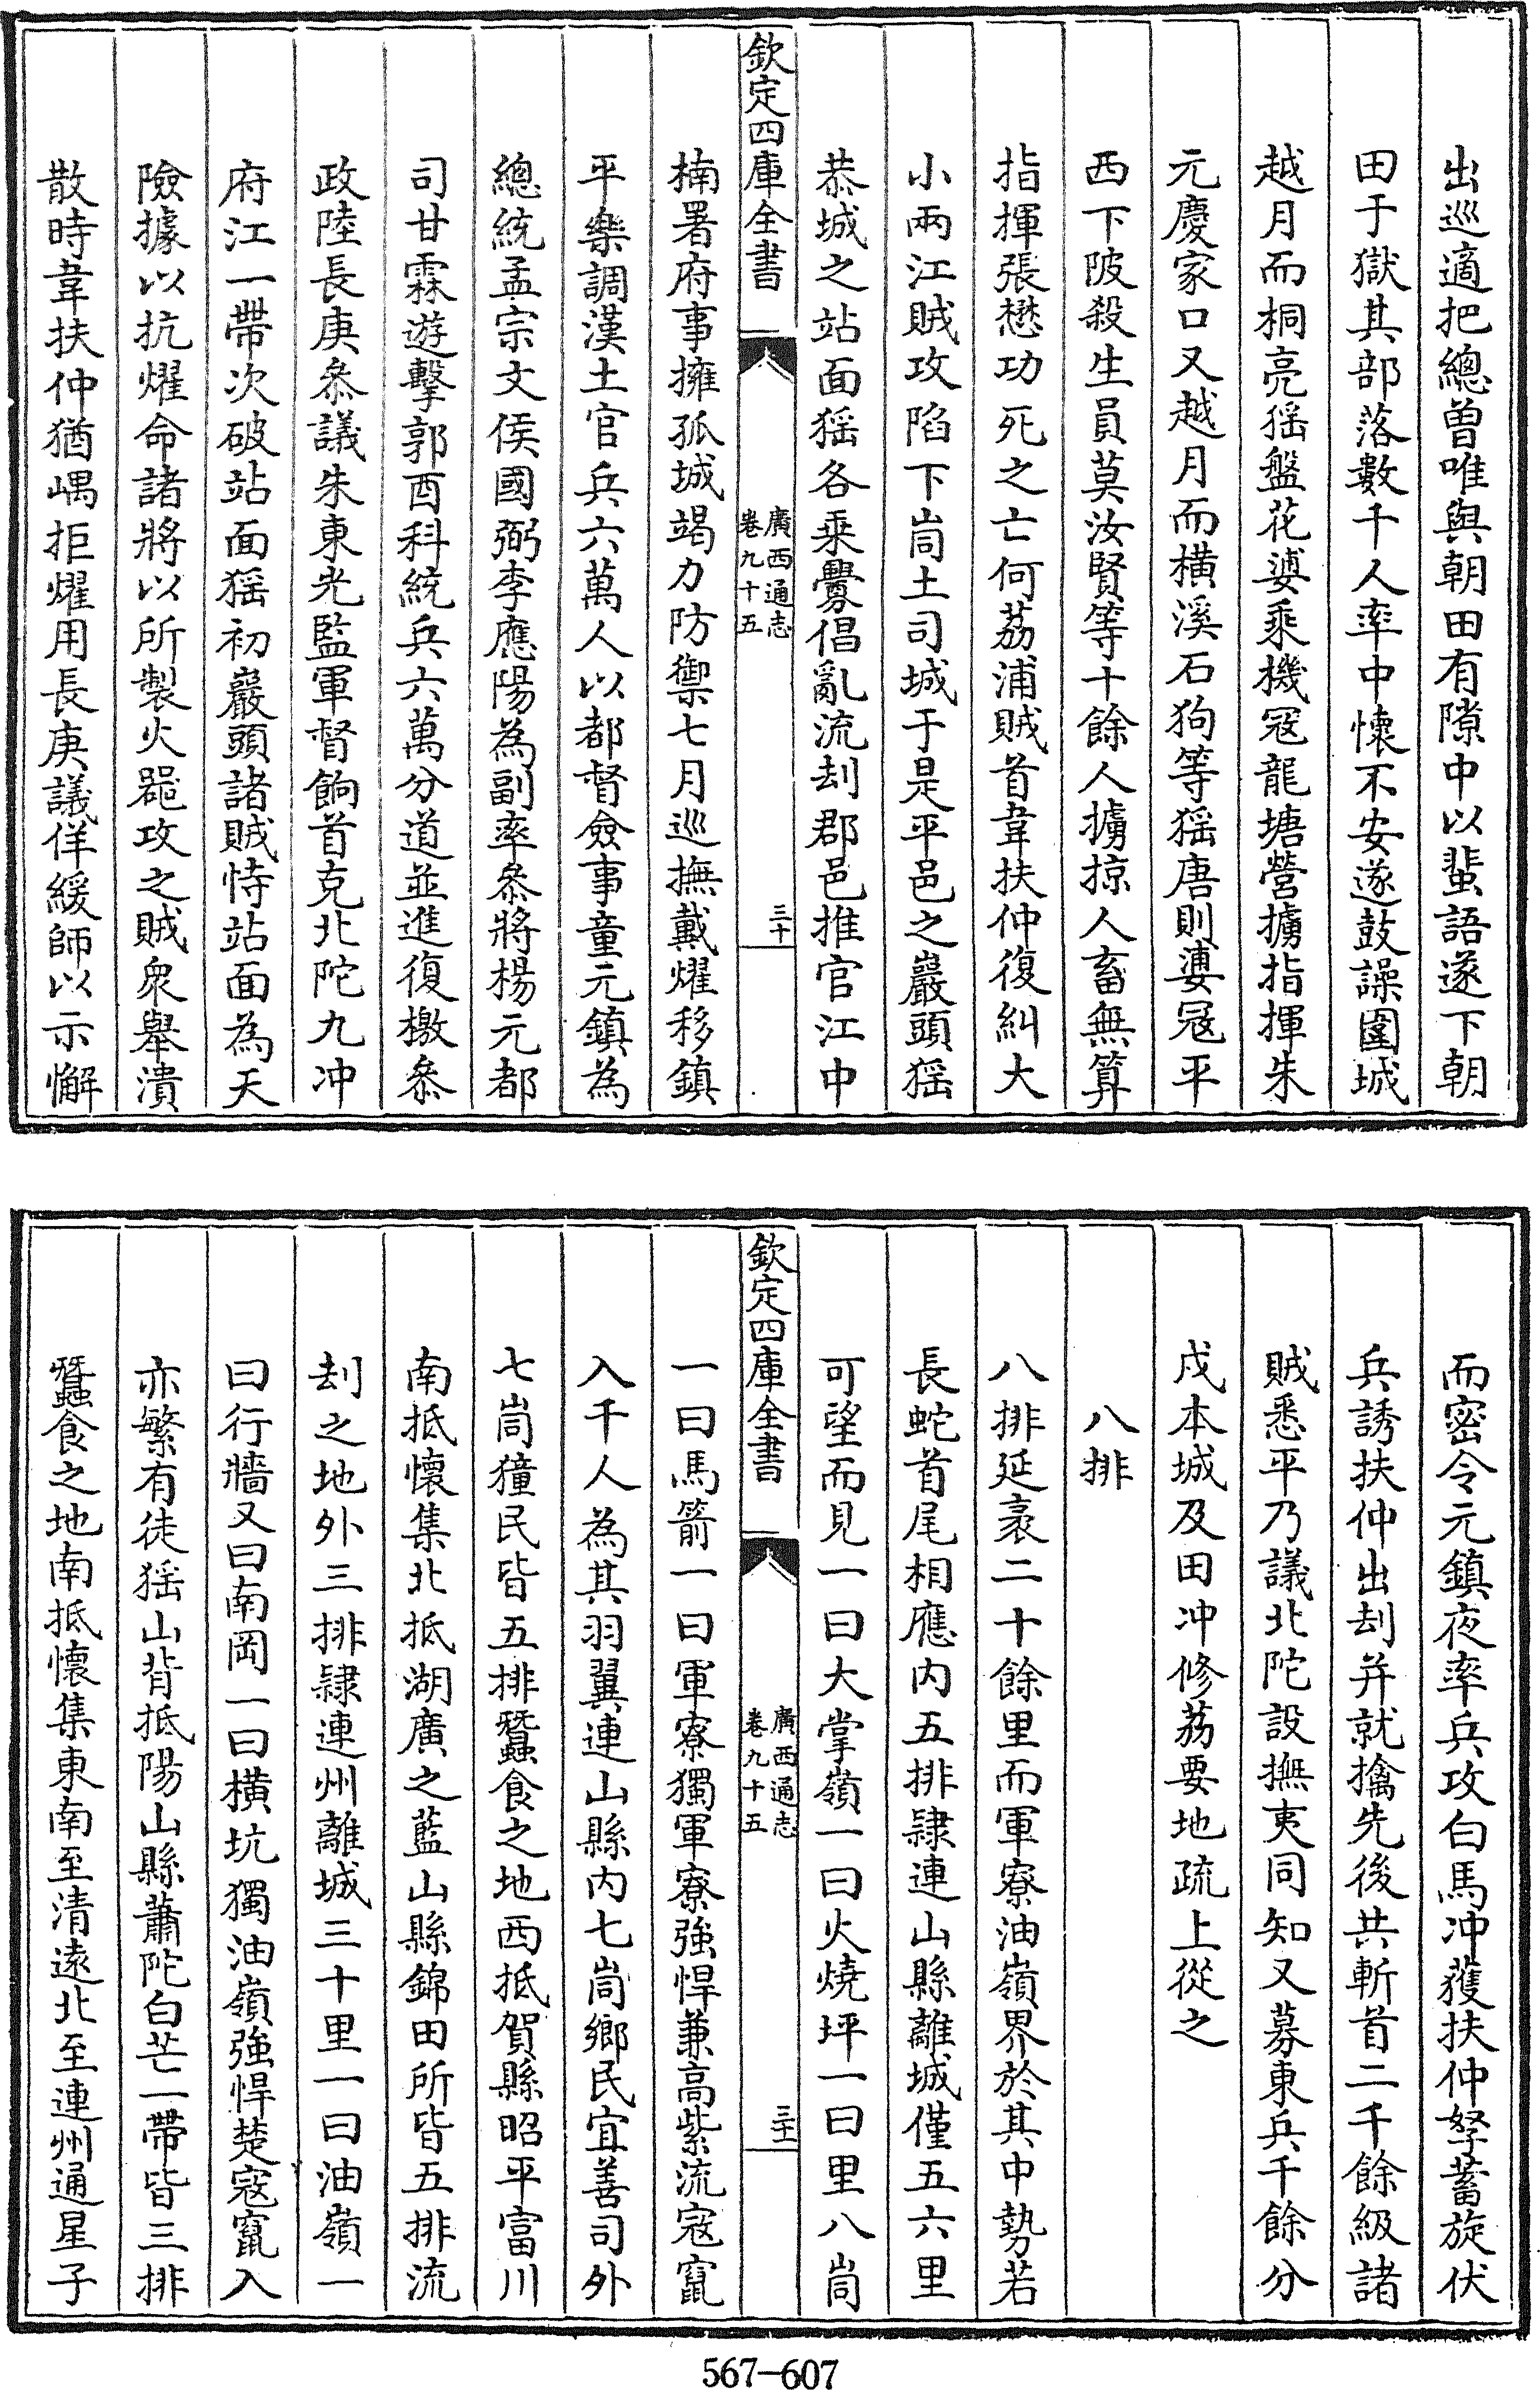 出巡適把總曽唯與朝田有隙中以蜚語遂下朝
田于獄其部落數千人率中懷不安遂鼓譟圍城
越月而桐亮猺盤花婆乘機寇龍塘營擄指揮朱
元慶家口又越月而橫溪石狗等猺唐則婆寇平
西下陂殺生員莫汝賢等十餘人擄掠人畜無算
指揮張懋功死之亡何荔浦賊首韋扶仲復糾大
小兩江賊攻陷下峝土司城于是平邑之巖頭猺
恭城之站面猺各乘釁倡亂流刦郡邑推官江中
欽定四庫全書
廣西通志
卷九十五
三十
楠署府事擁孤城竭力防禦七月巡撫戴燿移鎮
平樂調漢土官兵六萬人以都督僉事童元鎮為
總統孟宗文侯國弼李應陽為副率叅將楊元都
司甘霖遊擊郭酉科統兵六萬分道並進復檄叅
政陸長庚叅議朱東光監軍督餉首克北陀九冲
府江一帶次破站面猺初巖頭諸賊恃站面為天
險據以抗燿命諸將以所製火器攻之賊衆舉潰
散時韋扶仲猶嵎拒燿用長庚議佯緩師以示懈
而密令元鎮夜率兵攻白馬冲獲扶仲孥蓄旋伏
兵誘扶仲出刦并就擒先後共斬首二千餘級諸
賊悉平乃議北陀設撫夷同知又募東兵千餘分
戍本城及田冲修荔要地疏上從之
八排
八排延袤二十餘里而軍寮油嶺界於其中勢若
長蛇首尾相應内五排隸連山縣離城僅五六里
可望而見一曰大掌嶺一曰火燒坪一曰里八峝
欽定四庫全書
廣西通志
卷九十五
三十一
一曰馬箭一曰軍寮獨軍寮強悍兼高紫流寇竄
入千人為其羽翼連山縣内七峝鄉民宜善司外
七峝獞民皆五排蠶食之地西抵賀縣昭平富川
南抵懷集北抵湖廣之藍山縣錦田所皆五排流
刦之地外三排隸連州離城三十里一曰油嶺一
曰行牆又曰南岡一曰橫坑獨油嶺強悍楚寇竄入
亦繁有徒猺山背抵陽山縣蕭陀白芒一帶皆三排
蠶食之地南抵懷集東南至清遠北至連州通星子
567-607